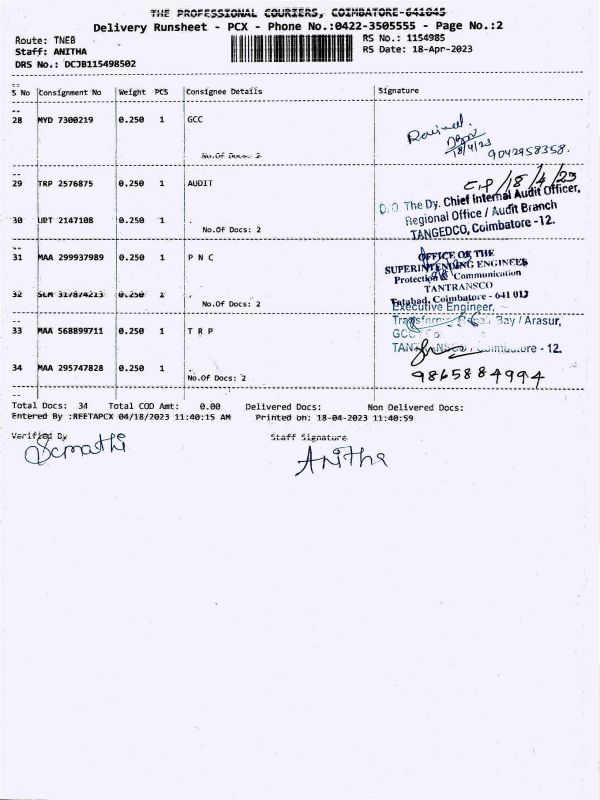 THE PROFESSIONAL COURIERS, COIMBATORE-641045
Delivery Runsheet - PCX - Phone No.:0422-3505555 - Page No.:2
Route: TNEB
RS No.: 1154985
Staff: ANITHA
RS Date: 18-Apr-2023
DRS No.: DCJB115498502
S No Consignment No Weight PCS Consignee Details Signature
28 MYD 7300219 0.250 1 GCC
No.Of Docs: 2
18/4/23
9042958358.
29 TRP 2576875 0.250 1 AUDIT
18/4/23
O/O The Dy. Chief Internal Audit Officer,
Regional Office / Audit Branch
TANGEDCO, Coimbatore -12.
30 URT 2147108 0.250 1 .
No.Of Docs: 2
31 MAA 299937989 0.250 1 P N C
OFFICE OF THE
SUPERINTENDING ENGINEER
Protection & Communication
TANTRANSCO
Tatabad, Coimbatore - 641 012
32 SLM 317874213 0.250 1 .
No.Of Docs: 2
Executive Engineer,
33 MAA 568899711 0.250 1 T R P
Bay / Arasur,
Coimbatore - 12.
34 MAA 295747828 0.250 1 .
No.Of Docs: 2
9865884994
Total Docs: 34 Total COD Amt: 0.00 Delivered Docs: Non Delivered Docs:
Entered By :REETAPCX 04/18/2023 11:40:15 AM Printed on: 18-04-2023 11:40:59
Verified By
Staff Signature
Anitha